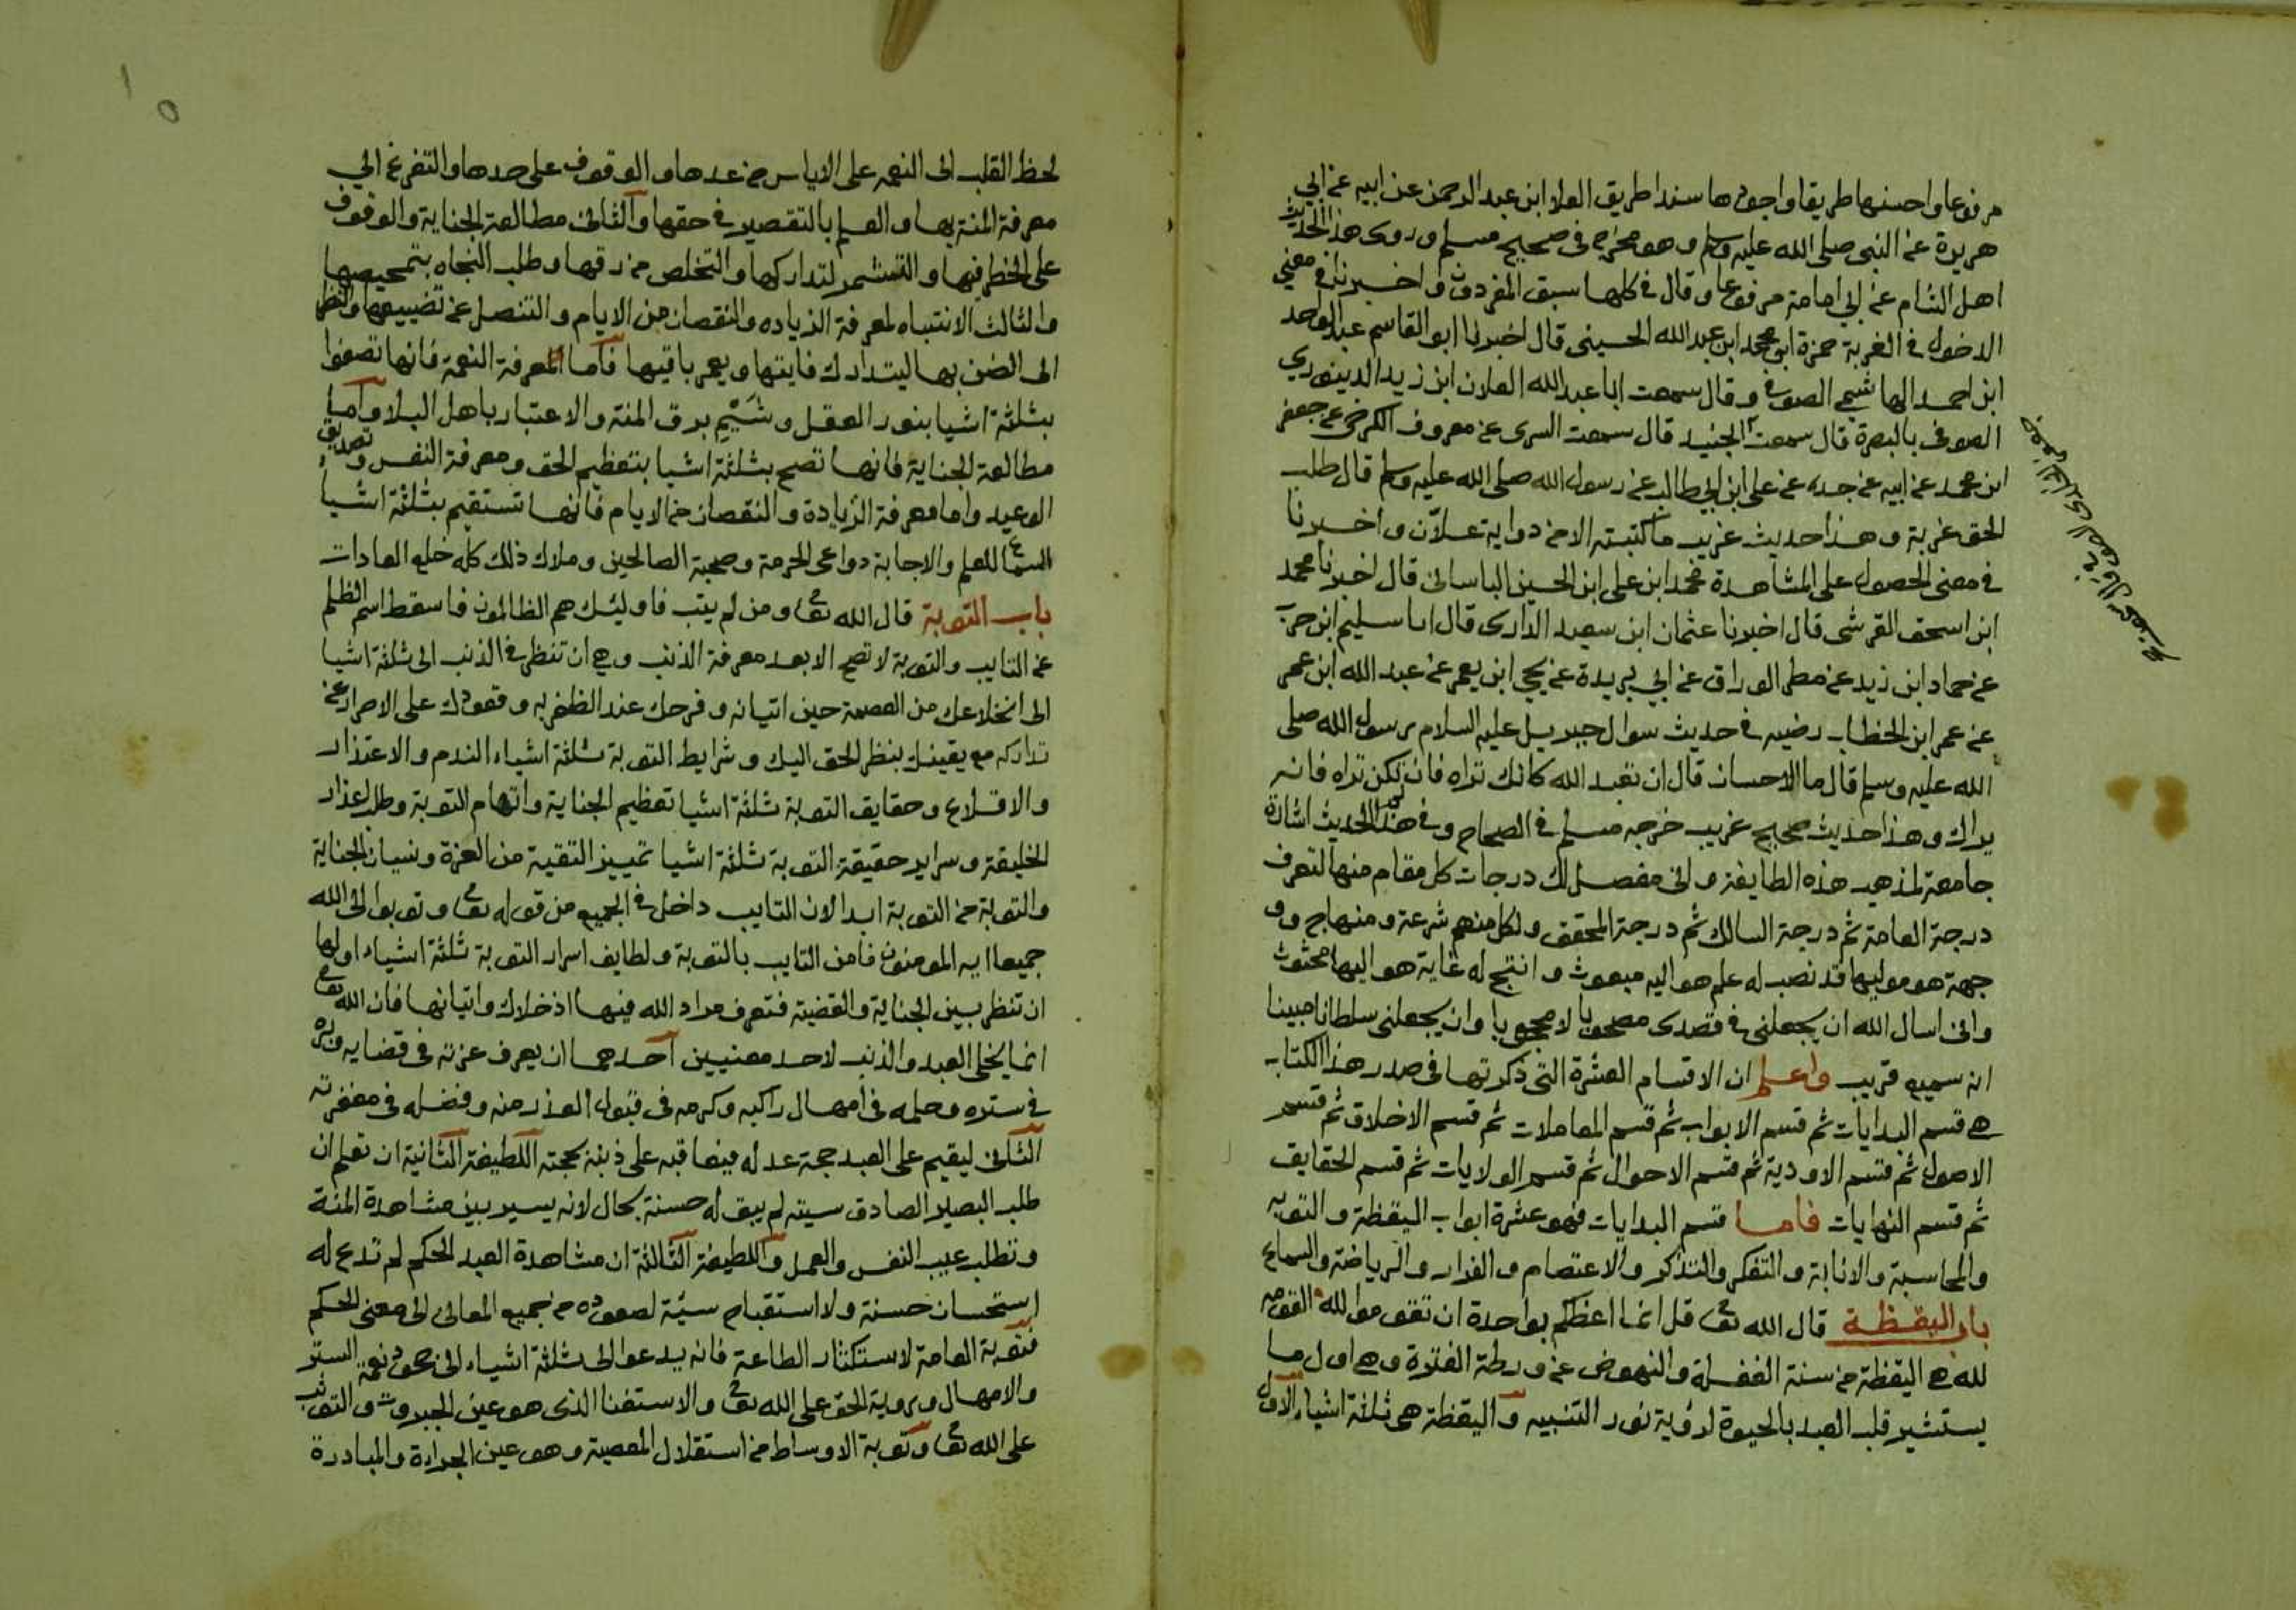 مرفوعا واحسنها طريقا واجودها سندا طريق العلا ابن عبد الرحمن عن ابيه عن ابي
هريرة عن النبي صلى الله عليه وسلم وهو مخرج في صحيح مسلم وروى هذا الحديث
اهل الشام عن ابي امامة مرفوعا وقال في كلها سبق المفردون واخبرنا في معنى
الدخول في الغربة حمزة ابن محمد ابن عبد الله الحسيني قال اخبرنا ابو القاسم عبد الواحد
ابن احمد الهاشمي الصوفي وقال سمعت ابا عبد الله العلان ابن زيد الدينوري
الصوفي بالبصرة قال سمعت الجنيد قال سمعت السرى عن معروف الكرخي عن جعفر
ابن محمد عن ابيه عن جده عن على ابن ابي طالب عن رسول الله صلى الله عليه وسلم قال طلب
الحق غربة وهذا حديث غريب ما كتبته الا من رواية علان واخبرنا
في معنى الحصول على المشاهدة محمد ابن على ابن الحسين الباساني قال اخبرنا محمد
ابن اسحق القرشى قال اخبرنا عثمان ابن سعيد الدارى قال انا سليم ابن حرب
عن حماد ابن زيد عن مطر الوراق عن ابي بريدة عن يحيى ابن يعمر عن عبد الله ابن عمر
عن عمر ابن الخطاب رضيه في حديث سوال جبريل عليه السلام رسول الله صلى
الله عليه وسلم قال ما الاحسان قال ان تعبد الله كانك تراه فان لم تكن تراه فانه
يراك وهذا حديث صحيح غريب خرجه مسلم في الصحاح وفي هذا الحديث اشارة
جامعة لمذهب هذه الطايفة واني مفصل لك درجات كل مقام منها لتعرف
درجة العامة ثم درجة السالك ثم درجة المحقق ولكل منهم شرعة ومنهاج و و
جهة هو موليها قد نصب له علم هو اليه مبعوث وانتج له غاية هو اليها محثوث
واني اسال الله ان يجعلني في قصدى مصحوبا لا محجوبا وان يجعلني سلطانا مبينا
انه سميع قريب واعلم ان الاقسام العشرة التي ذكرتها في صدر هذا الكتاب
هي قسم البدايات ثم قسم الابواب ثم قسم المعاملات ثم قسم الاخلاق ثم قسم
الاصول ثم قسم الاودية ثم قسم الاحوال ثم قسم الولايات ثم قسم الحقايق
ثم قسم النهايات فاما قسم البدايات فهو عشرة ابواب اليقظة والتوبه
والمحاسبة والانابة والتفكر والتذكر والاعتصام والفرار والرياضة والسماع
باب اليقظة قال الله تعا قل انما اعظكم بواحدة ان تقوموا لله القومه
لله هي اليقظة من سنة الغفلة والنهوض عن ورطة الفترة وهي اول ما
يستنير قلب العبد بالحيوة لرؤية نور التنبيه واليقظة هي ثلثة اشياء الاول
لحظ القلب الى النعمه على الاياس من عدها والوقوف على حدها والتفرغ الي
معرفة المنة بها والعلم بالتقصير في حقها والثاني مطالعة الجناية والوقوف
على الخطر فيها والتشمر لتداركها والتخلص من رقها وطلب النجاه بتمحيصها
والثالث الانتباه لمعرفة الزياده والنقصان من الايام والتنصل عن تضييعها والنظر
الى الضن بها ليتدارك فايتها ويعمر باقيها فاما المعرفة النعمة فانها تصفوا
بثلثة اشيا بنور العقل وشيم برق المنة والاعتبار باهل البلا واما
مطالعة الجناية فانها تصح بثلثة اشيا بتعظيم الحق ومعرفة النفس وتصديق
الوعيد واما معرفة الزيادة والنقصان من الايام فانها تستقيم بثلثة اشيا
السماع للعلم والاجابة دواعى الحرمة وصحبة الصالحين وملاك ذلك كله خلع العادات
باب التوبة قال الله تعا ومن لم يتب فاوليئك هم الظالمون فاسقط اسم الظلم
عن التايب والتوبة لا تصح الا بعد معرفة الذنب وهي ان تنظر في الذنب الى ثلثة اشيا
الى انخلاعك من العصمة حين اتيانه وفرحك عند الظفر به وقعودك على الاصرار عن
تداركه مع يقينك بنظر الحق اليك وشرايط التوبة ثلثة اشياء الندم والاعتذار
والاقلاع وحقايق التوبة ثلثة اشيا تعظيم الجناية واتهام التوبة وطلب اعذار
الخليقة وسراير حقيقة التوبة ثلثة اشيا تمييز التقية من العزة ونسيان الجناية
والتوبة من التوبة ابدا لان التايب داخل في الجميع من قوله تعا وتوبوا الى الله
جميعا ايه المومنون فامن التايب بالتوبة ولطايف اسرار التوبة ثلثة اشياء اولها
ان تنظر بين الجناية والقضية فتعرف مراد الله فيها اذ خلاك واتيانها فان الله تعا
انما يخلى العبد والذنب لاحد معنيين احدهما ان يعرف عزته في قضايه وبره
في ستره وحلمه في امهال راكبه وكرمه في قبول العذر منه وفضله في مغفرته
الثاني ليقيم على العبد حجة عدله فيعاقبه على ذنبه بحجته اللطيفة الثانية ان تعلم ان
طلب البصير الصادق سيته لم يبق له حسنة بحال لانه يسير بين مشاهدة المنة
وتطلب عيب النفس والعمل واللطيفة الثالثة ان مشاهدة العبد الحكم لم تدع له
استحسان حسنة ولا استقباح سيئة لصعوده من جميع المعاني الى معنى الحكم
فتوبة العامة لاستكثار الطاعة فانه يدعوا الى ثلثة اشياء الى جحود نعمة الستر
والامهال ورؤية الحق على الله تعا والاستغنا الذى هو عين الجبروت والتوثب
على الله تعا وتوبة الاوساط من استقلال المعصية وهو عين الجراءة والمبادرة